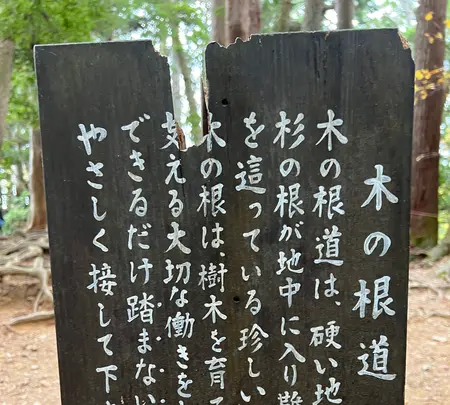 木の根道
木の根道は、硬い地
杉の根が地中に入り難
を這っている珍しい
木の根は、樹木を育て
支える大切な働きを
できるだけ踏まない
やさしく接して下